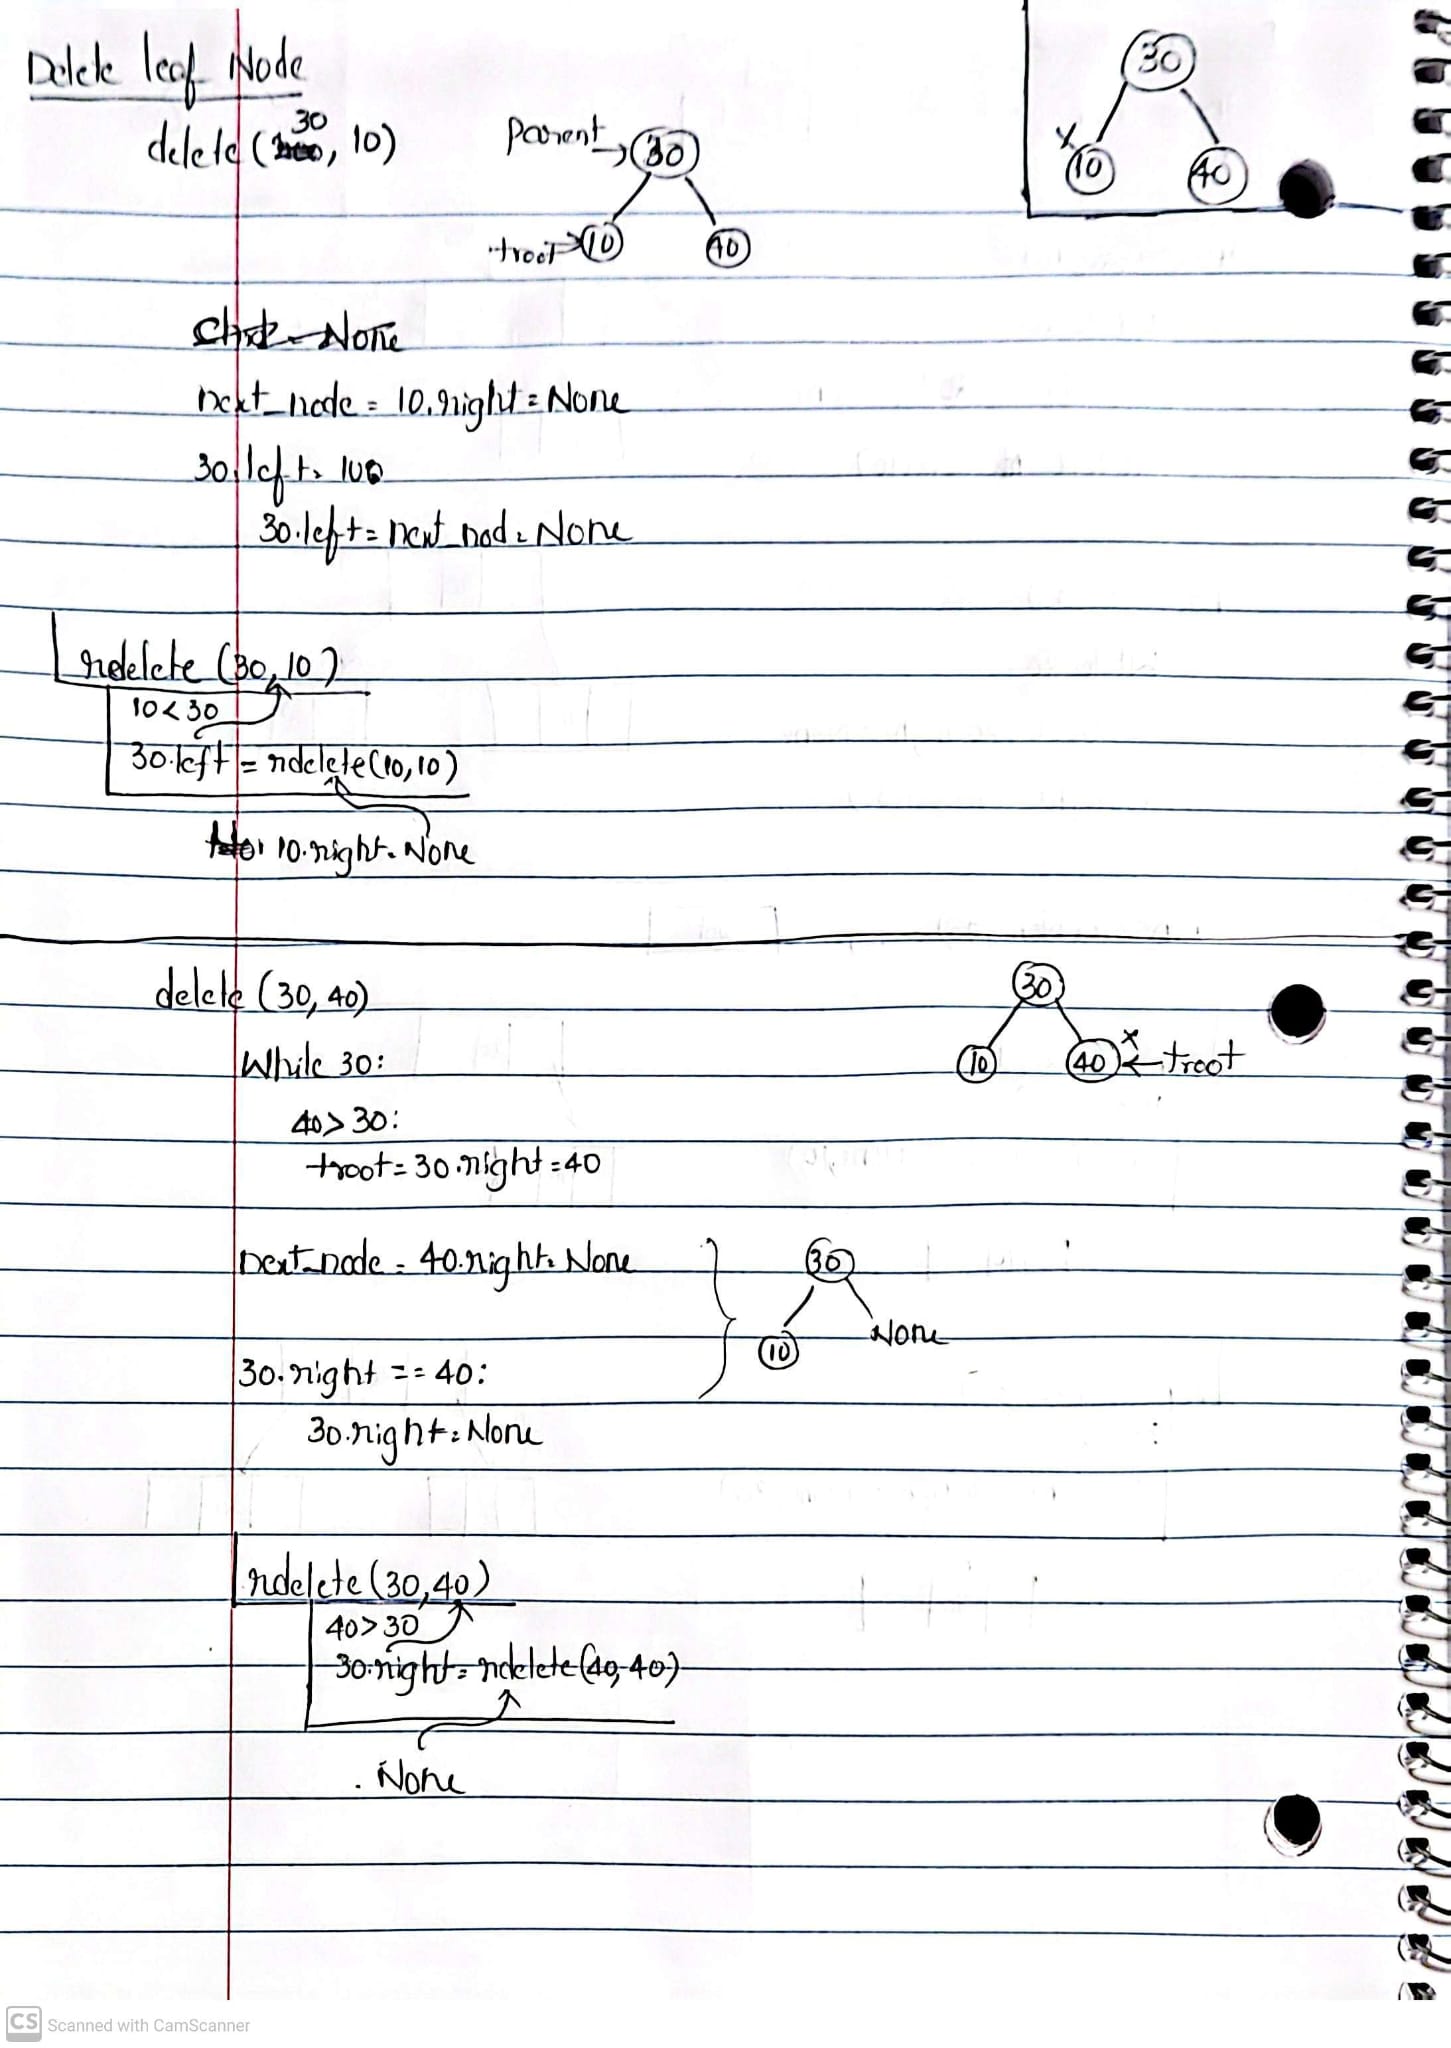 Delete leaf Node
30
delete ( , 10)
Parent
30
10
40
troot
30
x
10
40
next_node = 10.right = None
30.left = 10
30.left = next_nod = None
rdelete (30, 10)
10 < 30
30.left = rdelete(10, 10)
10.right = None
delete (30, 40)
30
10
40
x
troot
While 30:
40 > 30:
troot = 30.right = 40
next_node = 40.right = None
30
10
None
30.right == 40:
30.right = None
rdelete (30, 40)
40 > 30
30.right = rdelete (40, 40)
None
CS Scanned with CamScanner